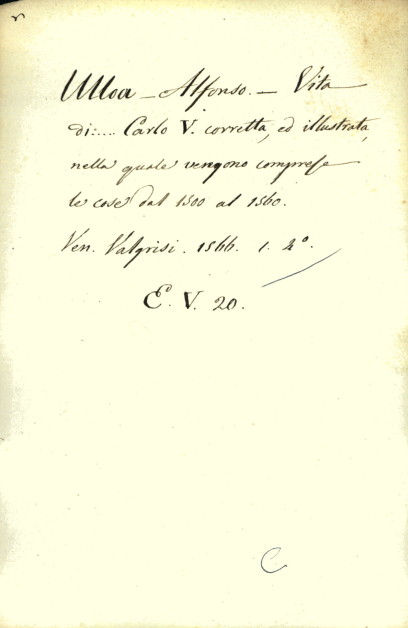 Ulloa — Alfonso. — Vita
di:.... Carlo V. corretta, ed illustrata,
nella quale vengono comprese
le cose dal 1500 al 1560.
Ven. Valgrisi. 1566. 1. 4°.
E. V. 20.
C